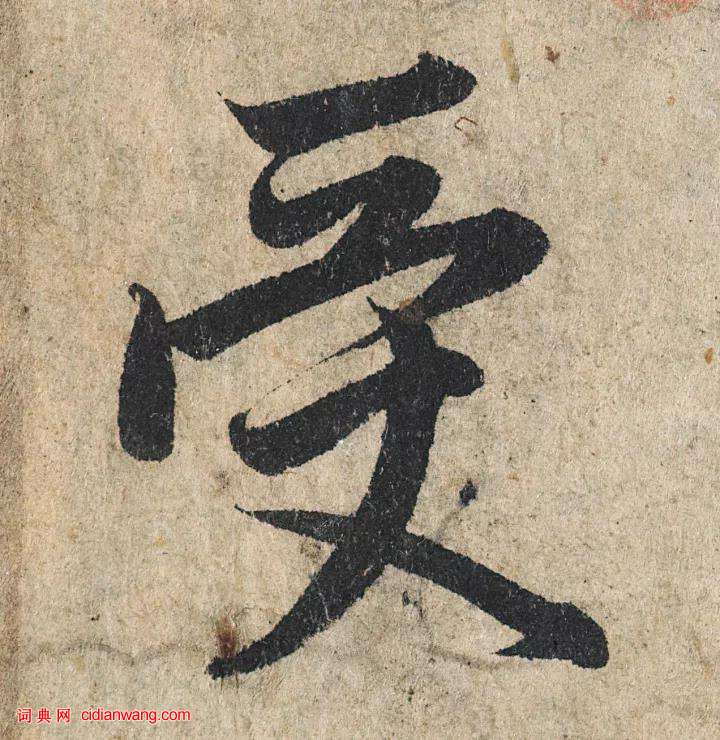 受
词典网 cidianwang.com